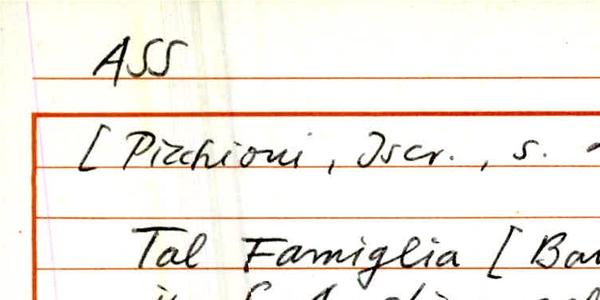 ASS
[ Picchioni, Iscr., s.
Tal Famiglia [